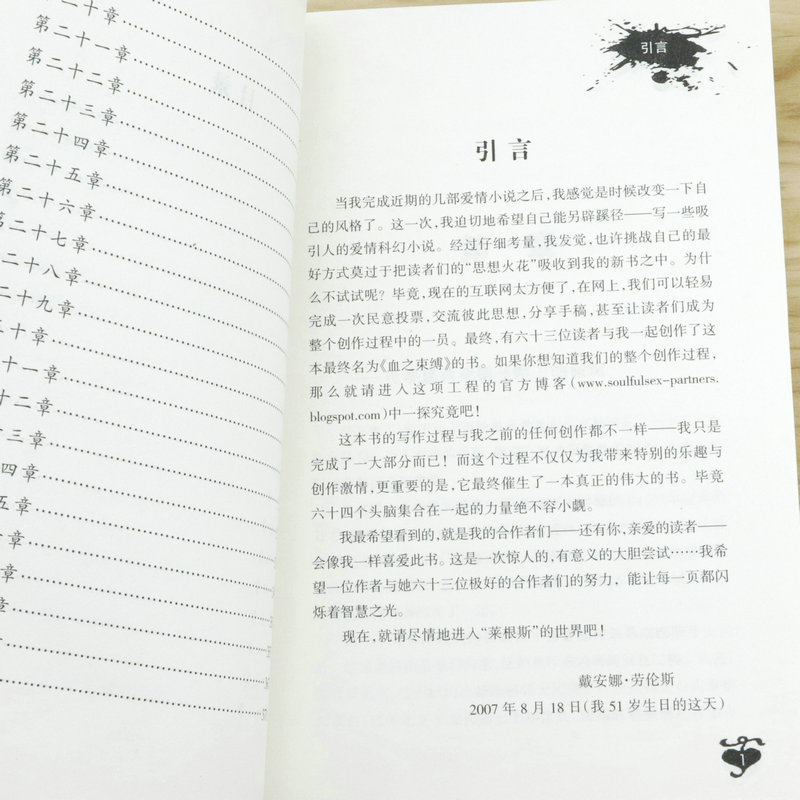 二十章
第二十一章
第二十二章
第二十三章
第二十四章
第二十五章
第二十六章
第二十七章
二十八章
二十九章
三十章
十一章
十二章
十三章
四章
五章
章
章
章
引言
引言
当我完成近期的几部爱情小说之后,我感觉是时候改变一下自
己的风格了。这一次,我迫切地希望自己能另辟蹊径——写一些吸
引人的爱情科幻小说。经过仔细考量,我发觉,也许挑战自己的最
好方式莫过于把读者们的“思想火花”吸收到我的新书之中。为什
么不试试呢?毕竟,现在的互联网太方便了,在网上,我们可以轻易
完成一次民意投票,交流彼此思想,分享手稿,甚至让读者们成为
整个创作过程中的一员。最终,有六十三位读者与我一起创作了这
本最终名为《血之束缚》的书。如果你想知道我们的整个创作过程,
那么就请进入这项工程的官方博客(www.soulfulsex-partners.
blogspot.com)中一探究竟吧!
这本书的写作过程与我之前的任何创作都不一样——我只是
完成了一大部分而已!而这个过程不仅仅为我带来特别的乐趣与
创作激情,更重要的是,它最终催生了一本真正的伟大的书。毕竟
六十四个头脑集合在一起的力量绝不容小觑。
我最希望看到的,就是我的合作者们——还有你,亲爱的读者——
会像我一样喜爱此书。这是一次惊人的,有意义的大胆尝试……我希
望一位作者与她六十三位极好的合作者们的努力,能让每一页都闪
烁着智慧之光。
现在,就请尽情地进入“莱根斯”的世界吧!
戴安娜·劳伦斯
2007年8月18日(我51岁生日的这天)
1